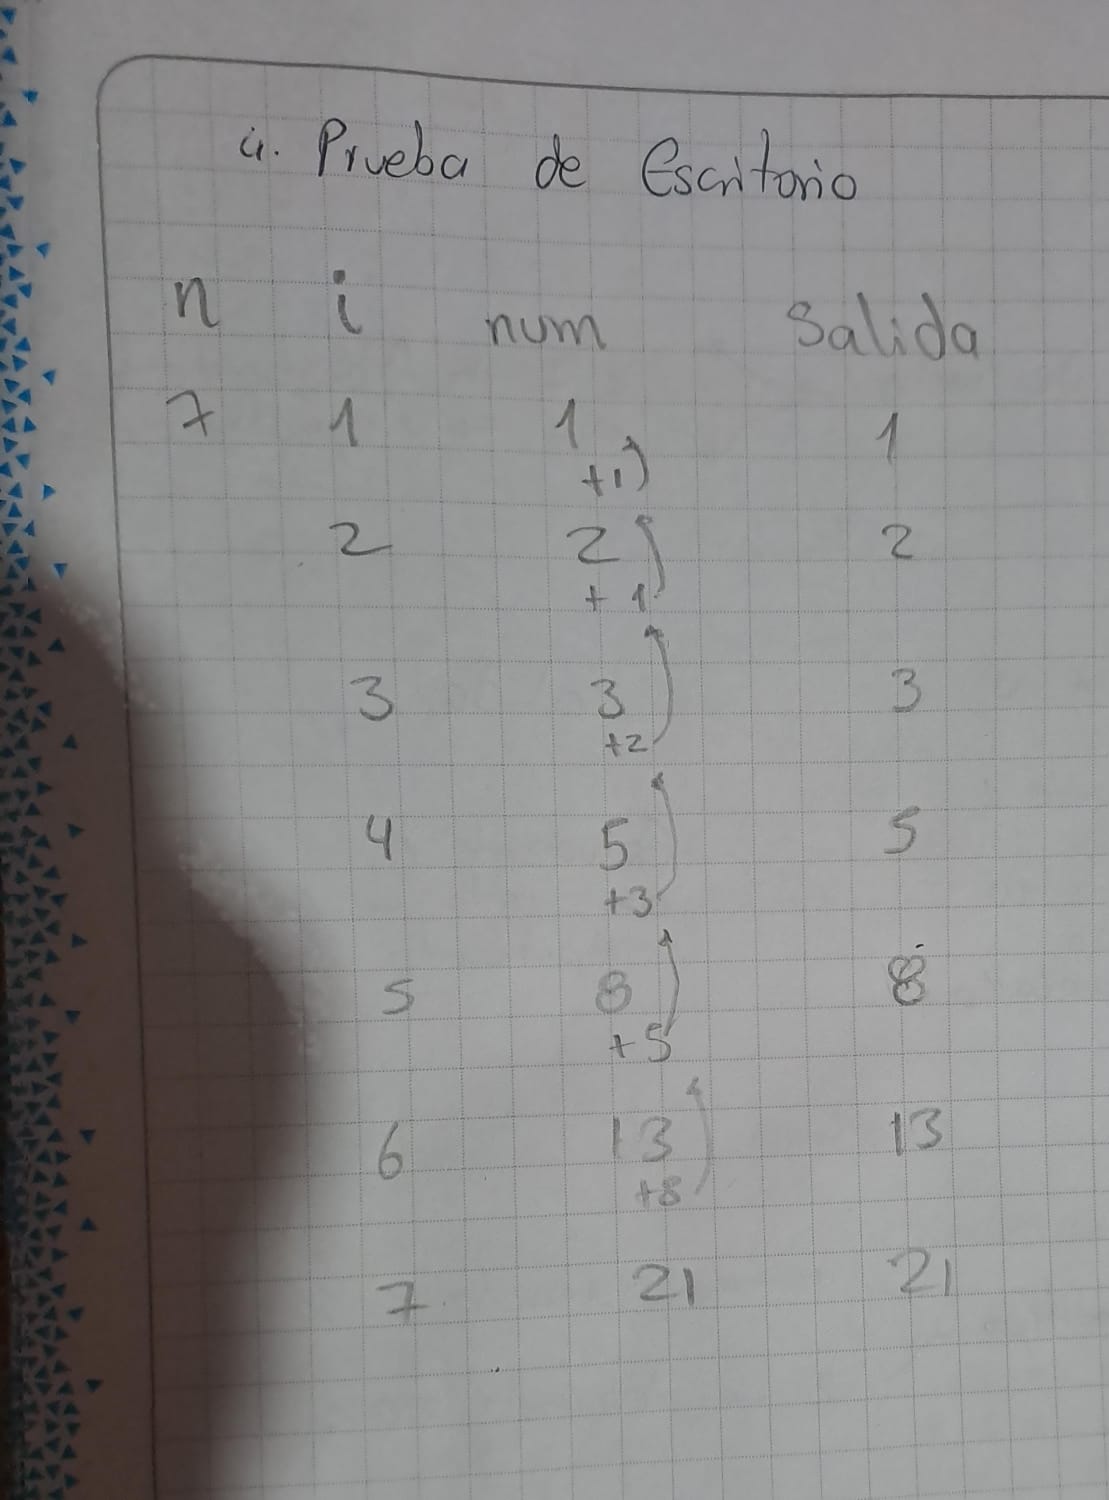 4. Prueba de Escritorio
n i num Salida
7 1 1 1
+1
2 2 2
+ 1
3 3 3
+2
4 5 5
+3
5 8 8
+5
6 13 13
+8
7 21 21